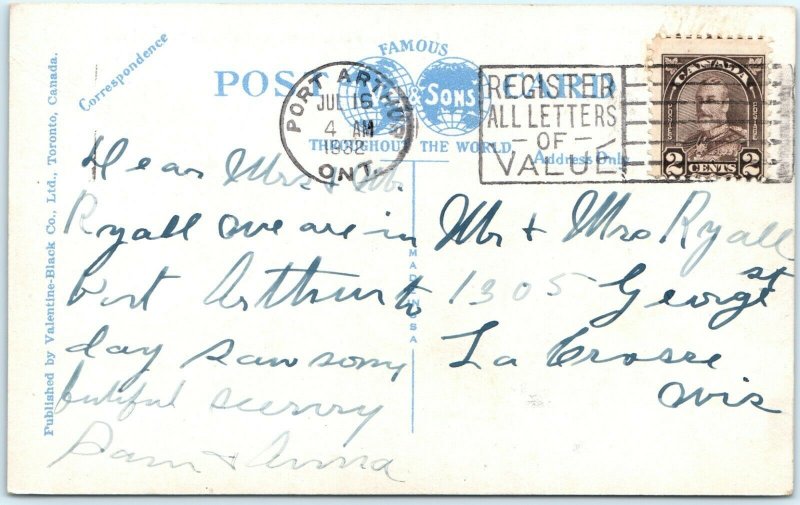 Published by Valentine-Black Co., Ltd., Toronto, Canada.
Correspondence
POST CARD
FAMOUS
& SONS
THROUGHOUT THE WORLD
Address Only
MADE IN USA
PORT ARTHUR
JUL 16
4 AM
1932
ONT.
REGISTER
ALL LETTERS
- OF -
VALUE
CANADA
2 CENTS 2
Dear Mrs & Mr.
Ryall we are in
Port Arthur to
day saw som
butiful scenry
Sam & Anna
Mr & Mrs Ryall
1305 George st
La Crosse
Wis